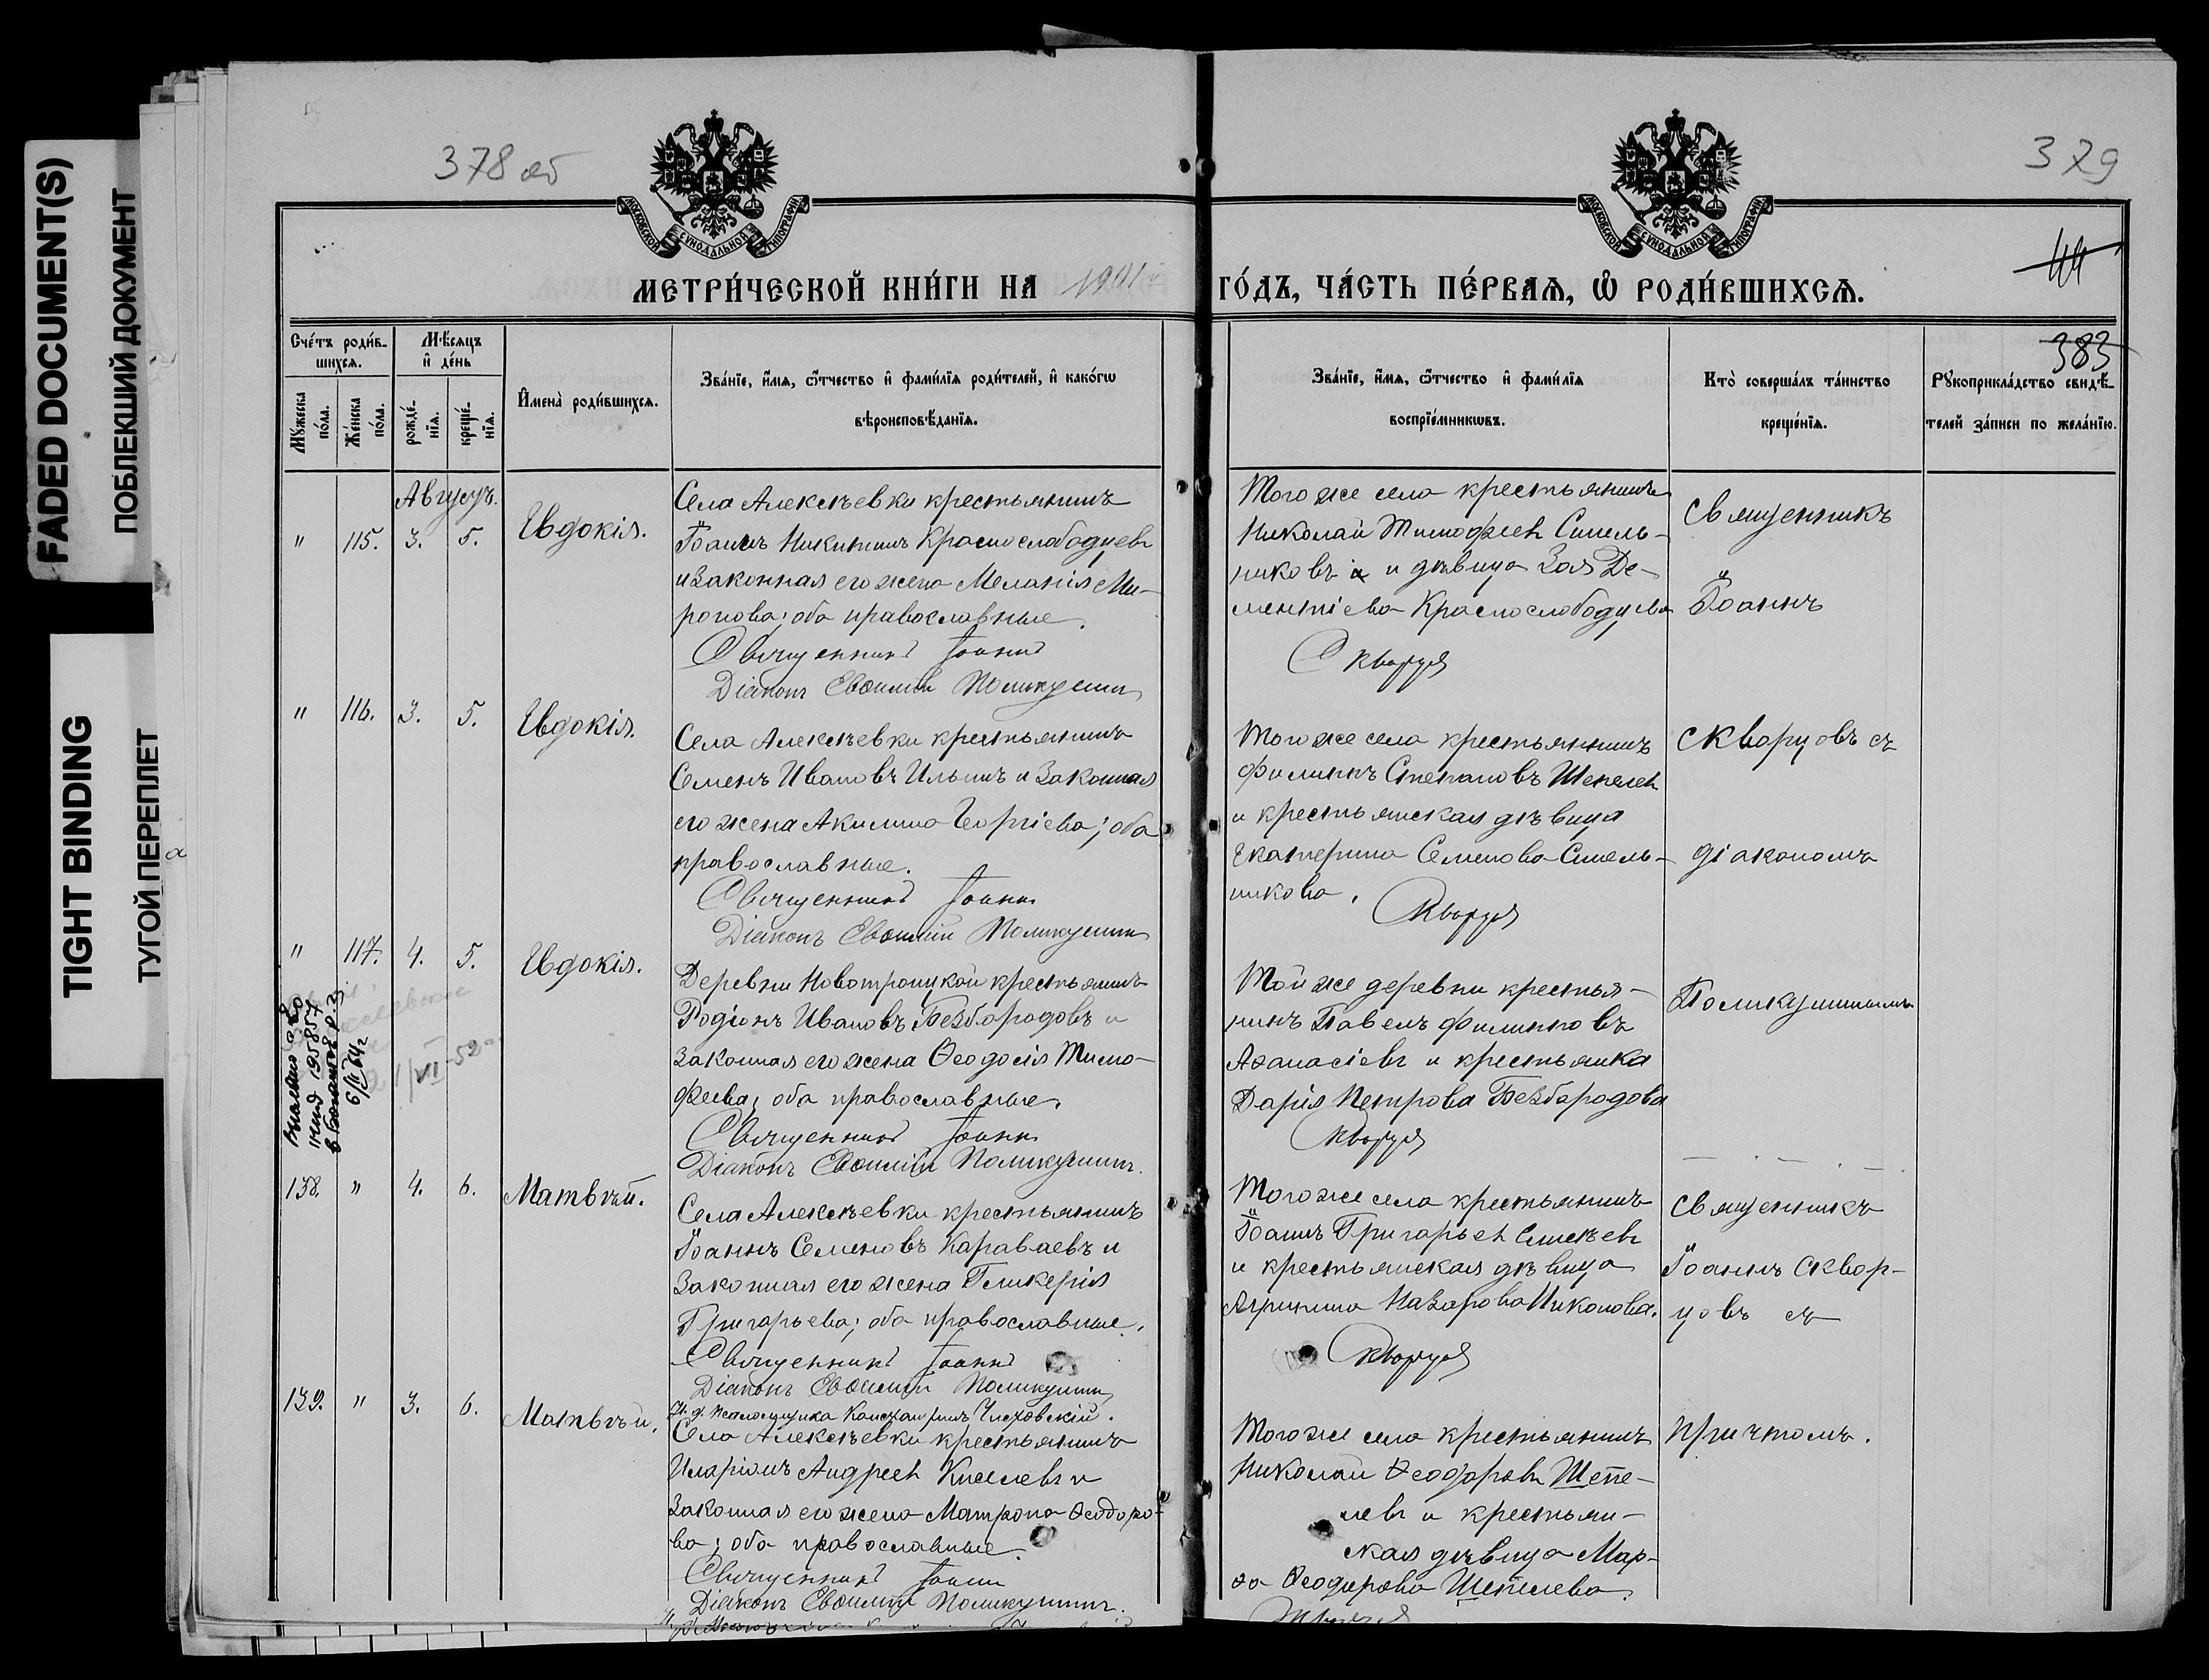 FADED DOCUMENT(S)
ПОБЛЕКШИЙ ДОКУМЕНТ
TIGHT BINDING
ТУГОЙ ПЕРЕПЛЕТ
378 об
379
44
383
МОСКОВСКОЙ СѴНОДАЛЬНОЙ ТИПОГРАФІИ
МОСКОВСКОЙ СѴНОДАЛЬНОЙ ТИПОГРАФІИ
МЕТРИ́ЧЕСКОЙ КНИ́ГИ НА 1901 ГО́ДЪ, ЧА́СТЬ ПЕ́РВАѦ, Ѽ РОДИ́ВШИХСѦ.
Сче́тъ роди́в-
шихся.
Му́жеска
по́ла.
Же́нска
по́ла.
Мѣ́сяцъ
и҆ де́нь
рожде́-
нїя.
креще́-
нїя.
И҆мена̀ роди́вшихся.
Зва́нїе, и҆́мя, ѻ҆́тчество и҆ фами́лїя роди́телей, и҆ како́гѡ
вѣроисповѣ́данїя.
Зва́нїе, и҆́мя, ѻ҆́тчество и҆ фами́лїя
воспрїе́мникѡвъ.
Кто̀ соверша́лъ та́инство
креще́нїя.
Рꙋкоприкла́дство свидѣ́-
телей за́писи по жела́нїю.
Августъ.
" 115. 3. 5. Евдокія.
Села Алексѣевки крестьянинъ
Іоаннъ Никитинъ Краснослободцевъ
и законная его жена Меланія Ми-
ронова; оба православные.
Священникъ Іоаннъ
Діаконъ Евѳимій Поликушинъ
Того же села крестьянинъ
Николай Тимофеевъ Синель-
никовъ и дѣвица Зоя Де-
ментіева Краснослободцева
Скворцовъ
Священникъ
Іоаннъ
" 116. 3. 5. Евдокія.
Села Алексѣевки крестьянинъ
Семенъ Ивановъ Ильинъ и законная
его жена Акилина Георгіева; оба
православные.
Священникъ Іоаннъ
Діаконъ Евѳимій Поликушинъ
Того же села крестьянинъ
Филиппъ Степановъ Шепелевъ
и крестьянская дѣвица
Екатерина Семенова Синель-
никова.
Скворцовъ
Скворцовъ съ
діакономъ
" 117. 4. 5. Евдокія.
Деревни Новотроицкой крестьянинъ
Родіонъ Ивановъ Безбородовъ и
законная его жена Ѳеодосія Тимо-
феева; оба православные.
Священникъ Іоаннъ
Діаконъ Евѳимій Поликушинъ.
Той же деревни крестья-
нинъ Павелъ Филипповъ
Аѳанасіевъ и крестьянка
Дарія Петрова Безбородова
Скворцовъ
Поликушинымъ
VI-52
6/II 64г
138. " 4. 6. Матвѣй.
Села Алексѣевки крестьянинъ
Іоаннъ Семеновъ Караваевъ и
законная его жена Гликерія
Григорьева; оба православные.
Священникъ Іоаннъ
Діаконъ Евѳимій Поликушинъ
И. д. псаломщика
Того же села крестьянинъ
Іоаннъ Григорьевъ
и крестьянская дѣвица
Агрипина Назарова Николова.
Скворцовъ
Священникъ
Іоаннъ Сквор-
цовъ съ
139. " 3. 6. Матвѣй.
Села Алексѣевки крестьянинъ
Иларіонъ Андреевъ Киселевъ и
законная его жена Матрона Ѳеодоро-
ва; оба православные.
Священникъ Іоаннъ
Діаконъ Евѳимій Поликушинъ.
Того же села крестьянинъ
Николай Ѳеодоровъ Шепе-
левъ и крестьян-
ская дѣвица Мар-
ѳа Ѳеодорова Шепелева.
причтомъ.